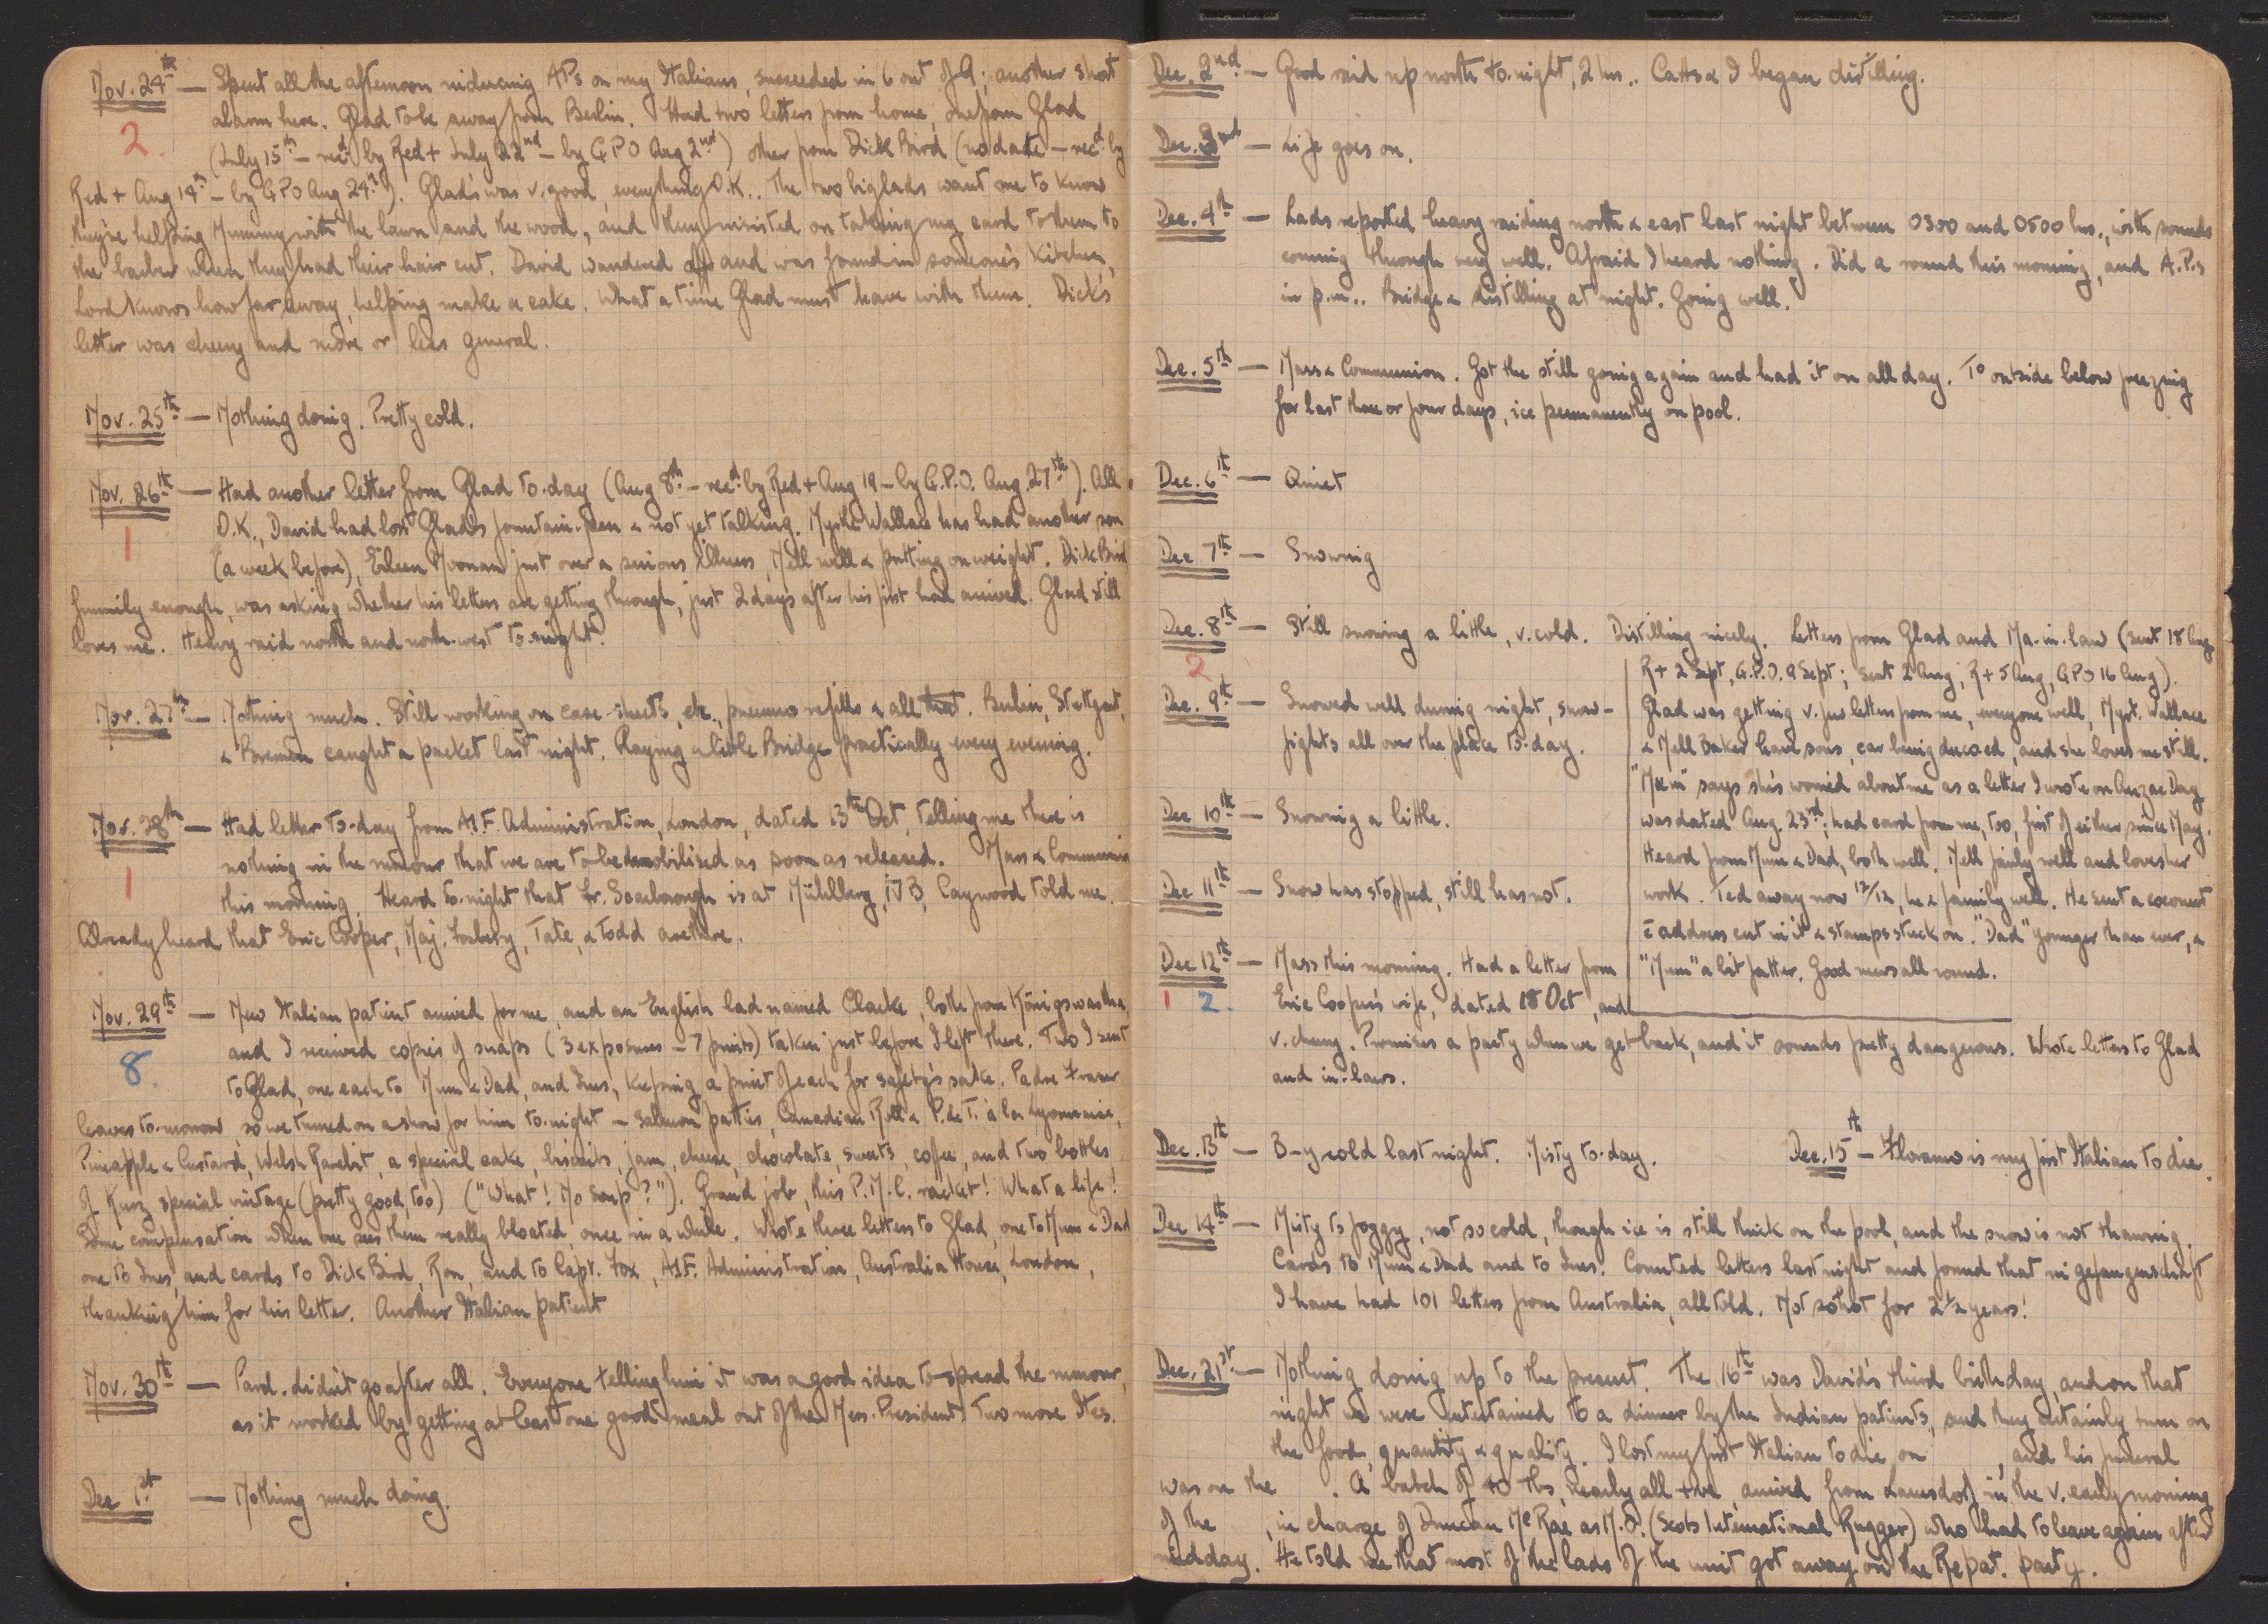 Nov. 24th — Spent all the afternoon inducing APs on my Italians, succeeded in 6 out of 9; another short
alarm here. Glad to be away from Berlin. Had two letters from home, one from Glad
2.
(July 15th – recd by Red + July 22nd – by GPO Aug 2nd) other from Dick Bird (no date – recd by
Red + Aug 14th – by GPO Aug 24th). Glad's was v. good, everything O.K.. The two big lads want me to know
they're helping Mummy with the lawn and the wood, and they insisted on taking my card to them to
the barber when they had their hair cut. David wandered off and was found in someone's kitchen,
Lord knows how far away, helping make a cake. What a time Glad must have with them. Dick's
letter was cheery and more or less general.
Nov. 25th — Nothing doing. Pretty cold.
Nov. 26th — Had another letter from Glad to-day (Aug 8th – recd by Red + Aug 19 – by G.P.O. Aug. 27th). All
1
O.K., David had lost Glad's fountain-pen & not yet talking. Myrtle Wallace has had another son
(a week before), Eileen Noonan just over a serious illness, Nell well & putting on weight. Dick Bird
funnily enough, was asking whether his letters are getting through, just 2 days after his first had arrived. Glad still
loves me. Heavy raid north and north-west to-night.
Nov. 27th — Nothing much. Still working on case-sheets, etc., pneumo refills & all that. Berlin, Stuttgart,
& Bremen caught a packet last night. Playing a little Bridge practically every evening.
Nov. 28th — Had letter to-day from A.I.F. Administration, London, dated 13th Oct, telling me there is
nothing in the rumour that we are to be demobilised as soon as released. Mass & Communion
1
this morning. Heard to-night that Fr. Scarborough is at Mühlberg, IVB, Caywood told me.
Already heard that Eric Cooper, Maj. Losbery, Tate, & Todd are there.
Nov. 29th — New Italian patient arrived for me, and an English lad named Clarke, both from Königswartha,
and I received copies of snaps (3 exposures – 7 prints) taken just before I left there. Two I sent
8.
to Glad, one each to Mum & Dad, and Ines, keeping a print of each for safety's sake. Padre Fraser
leaves to-morrow, so we turned on a show for him to-night – Salmon patties, Canadian Roll & P. de T. à la Lyonnaise,
Pineapple & Custard, Welsh Rarebit, a special cake, biscuits, jam, cheese, chocolate, sweets, coffee, and two bottles
of Kurz special vintage (pretty good, too) ("What! No Soup?"). Grand job, this P.M.C. racket! What a life!
Some compensation when one sees them really bloated once in a while. Wrote three letters to Glad, one to Mum & Dad
one to Ines, and cards to Dick Bird, Ron, and to Capt. Fox, A.I.F. Administration, Australia House, London,
thanking him for his letter. Another Italian patient
Nov. 30th — Pard. didn't go after all. Everyone telling him it was a good idea to spread the rumour,
as it worked by getting at least one good meal out of the Mess-President. Two more Ites.
Dec 1st — Nothing much doing.
Dec. 2nd — Good raid up north to-night, 2 hrs.. Catts & I began distilling.
Dec. 3rd — Life goes on.
Dec. 4th — Lads reported heavy raiding north & east last night between 0300 and 0500 hrs., with sounds
coming through very well. Afraid I heard nothing. Did a round this morning, and A.P.s
in p.m.. Bridge & distilling at night. Going well.
Dec. 5th — Mass & Communion. Got the still going again and had it on all day. T° outside below freezing
for last three or four days, ice permanently on pool.
Dec. 6th — Quiet
Dec 7th — Snowing
Dec. 8th — Still snowing a little, v. cold. Distilling nicely. Letters from Glad and Ma-in-law (sent 18 Aug
2
R+ 2 Sept, G.P.O. 9 Sept; sent 2 Aug, R+ 5 Aug, GPO 16 Aug).
Glad was getting v. few letters from me, everyone well, Myrt. Wallace
& Nell Baker have sons, car being ducoed, and she loves me still.
"Mum" says she's worried about me as a letter I wrote on Anzac Day
was dated Aug. 23rd; had card from me, too, first of either since May.
Heard from Mum & Dad, both well. Nell fairly well and loves her
work. Ted away now 12/12, he & family well. He sent a coconut
c̄ address cut in it & stamps stuck on. "Dad" younger than ever, &
"Mum" a bit fatter. Good news all round.
Dec. 9th — Snowed well during night, snow-
fights all over the place to-day.
Dec 10th — Snowing a little.
Dec 11th — Snow has stopped, still has not.
Dec 12th — Mass this morning. Had a letter from
1 2.
Eric Cooper's wife, dated 18 Oct, and
v. cheery. Promises a party when we get back, and it sounds pretty dangerous. Wrote letters to Glad
and in-laws.
Dec. 13th — B-y cold last night. Misty to-day.
Dec. 15th — Floramo is my first Italian to die.
Dec 14th — Misty to foggy, not so cold, though ice is still thick on the pool, and the snow is not thawing.
Cards to Mum & Dad and to Ines. Counted letters last night and found that in gefangenschaft
I have had 101 letters from Australia, all told. Not so hot for 2½ years!
Dec. 21st — Nothing doing up to the present. The 16th was David's third birthday, and on that
night we were entertained to a dinner by the Indian patients, and they certainly turn on
the food, quantity & quality. I lost my first Italian to die on , and his funeral
was on the . A batch of 40 tbs, nearly all +ve, arrived from Lamsdorf in the v. early morning
of the , in charge of Duncan McRae as M.O. (Scots International Rugger) who had to leave again after
midday. He told me that most of the lads of the unit got away on the Repat. party.